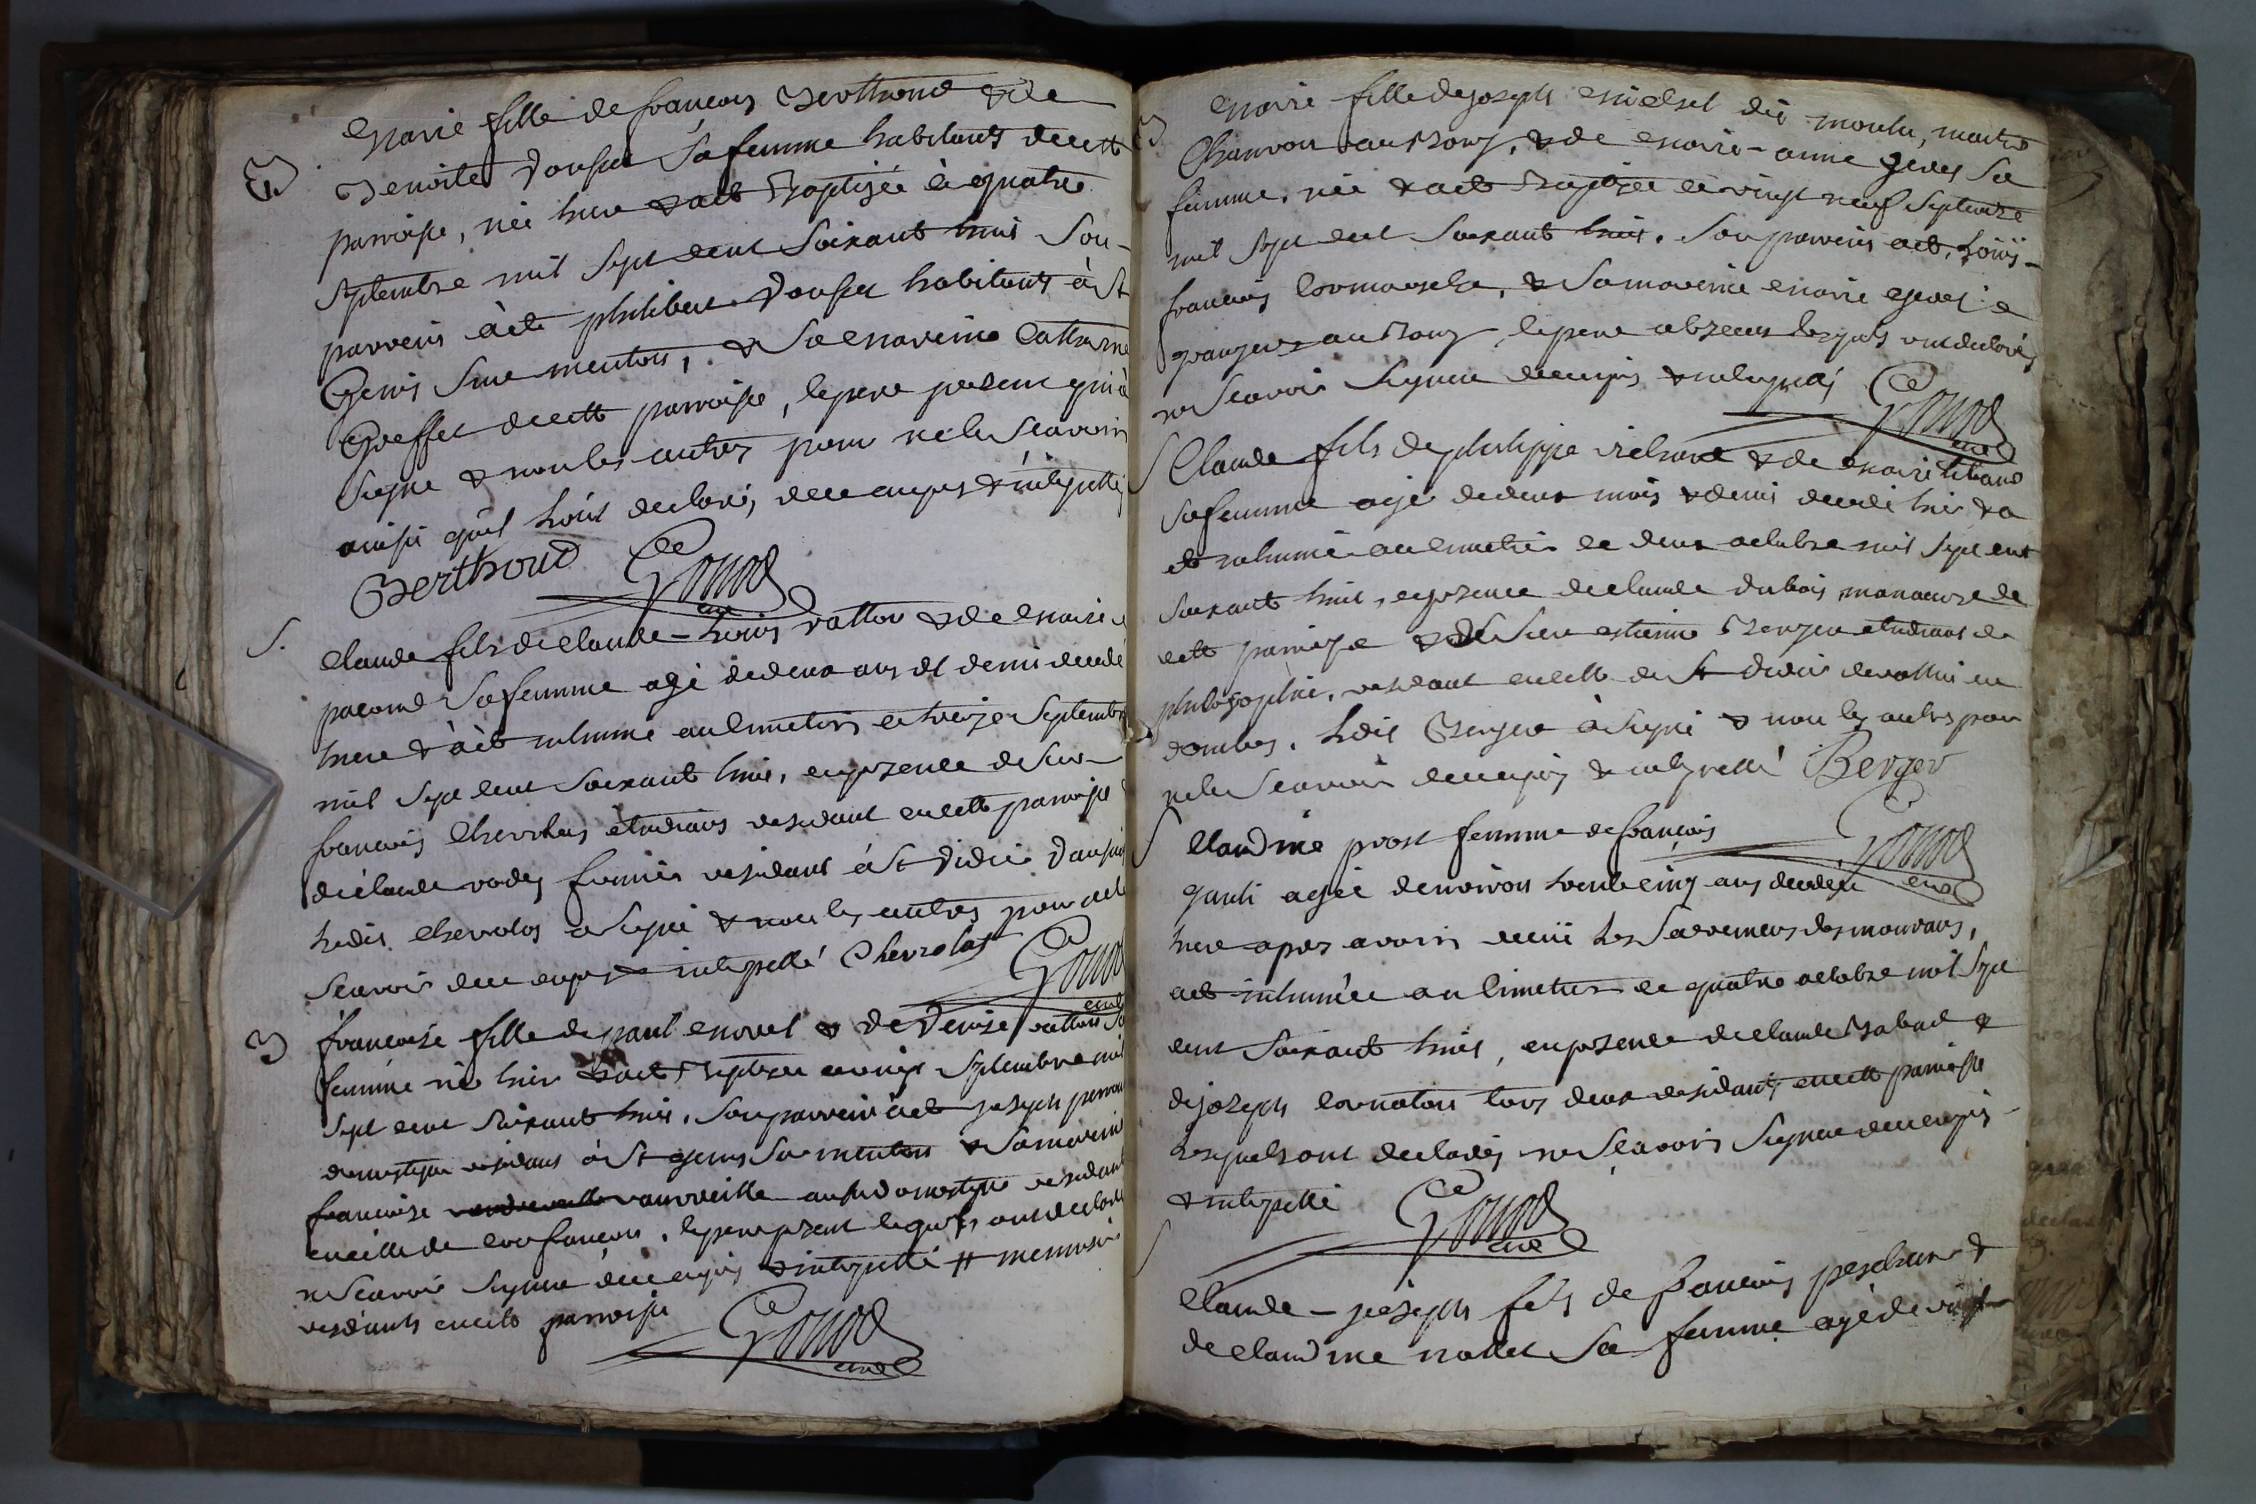 B Marie fille de françois Berthoud & de
Benoite Doufet sa femme habitants decette
parroisse, née hier & a eté Baptisée le quatre
septembre mil sept cent soixante huit son
parrein à été philibert Doufet habitant à st
Genis sur menton, & sa mareine Catherine
Goeffet decette parroisse, le pere present qui à
signe & non les autres pour ne le scavoir
ainsi qu'il l'ont declaré, de ce enquis & interpellé
Berthoud Gonod curé
S. Claude fils de claude-Louis ratton & de marie
pacoud sa femme agé de deux ans et demi decedé
hier & à été inhumé au cimetier le treize septembre
mil sept cent soixante huit, en presence de sieur
françois Chevrolas étudians residant en cette parroisse
de claude rodes fermier residant à st Didier
ledit chevrolas a signé & non les autres pour ne le
scavoir de ce enquis & interpellé Chevrolas Gonod
curé
B françoise fille de paul morel & de Denise ratton sa
femme née hier & a eté Baptisée le vingt septembre mil
sept cent soixante huit, son parrein à été joseph
domestique residant à st genis sur menton & sa mareine
françoise aussi domestique residant
en celle de , le pere present lesquels ont declaré
ne scavoir signer de ce enquis & interpellé #
residants en cette parroisse Gonod
curé
B Marie fille de joseph michel dit moulu, maitre
Chanvou au Bourg, & de marie-anne geres sa
femme, née & a eté Baptisée le vingt neuf septembre
mil sept cent soixante huit. son parrein a eté Loüis
françois Cormoreche, & sa mareine marie
granger au Bourg, le pere absent lesquels ont declarés
ne scavoir signer de ce enquis & interpellés Gonod
curé
S Claude fils de philippe richard & de marie
sa femme agé de deux mois & demi decedé hier & a
eté inhumé au cimetier le deux octobre mil sept cent
soixante huit, en presence de claude dubois manoeuvre de
cette parroisse & de sieur estienne Berger etudians de
philosophie, residant en celle de st didier de vallin en
dombes. ledit Berger à signé & non les autres pour
ne le scavoir de ce enquis & interpellé Berger
Gonod
curé
S Claudine prost femme de françois
ganti agée d'environ trente cinq ans decedée
hier apres avoir recüe les sacremens des mourans,
a eté inhumée au cimetier le quatre octobre mil sept
cent soixante huit, en presence de claude Babad &
de joseph cornaton tous deux residants en cette parroisse
lesquels ont declarés ne scavoir signer de ce enquis
& interpellé Gonod
curé
S Claude-joseph fils de françois pescheur &
de claudine nallet sa femme agé de